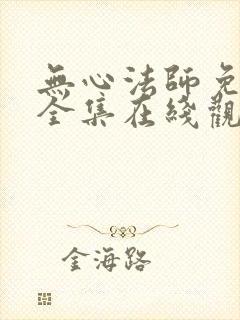 無心法師免
全集在綫觀
金海路